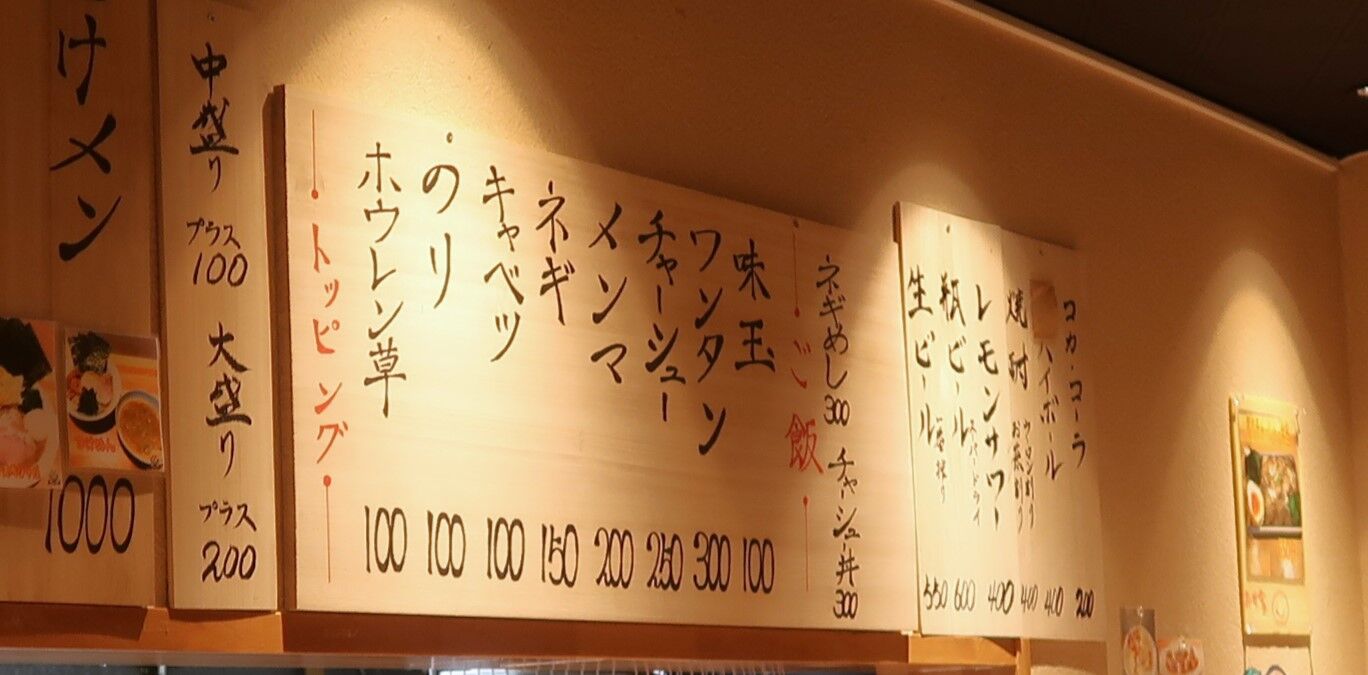 けメン
1000
中盛り
プラス
100
大盛り
プラス
200
トッピング
ホウレン草 100
のり 100
キャベツ 100
ネギ 150
メンマ 200
チャーシュー 250
ワンタン 300
味玉 100
ご飯
ネギめし 300
チャーシュー丼 300
生ビール 550
瓶ビール スーパードライ 600
レモンサワー 400
焼酎 ウーロン割り お茶割り 400
ハイボール 400
コカ・コーラ 200